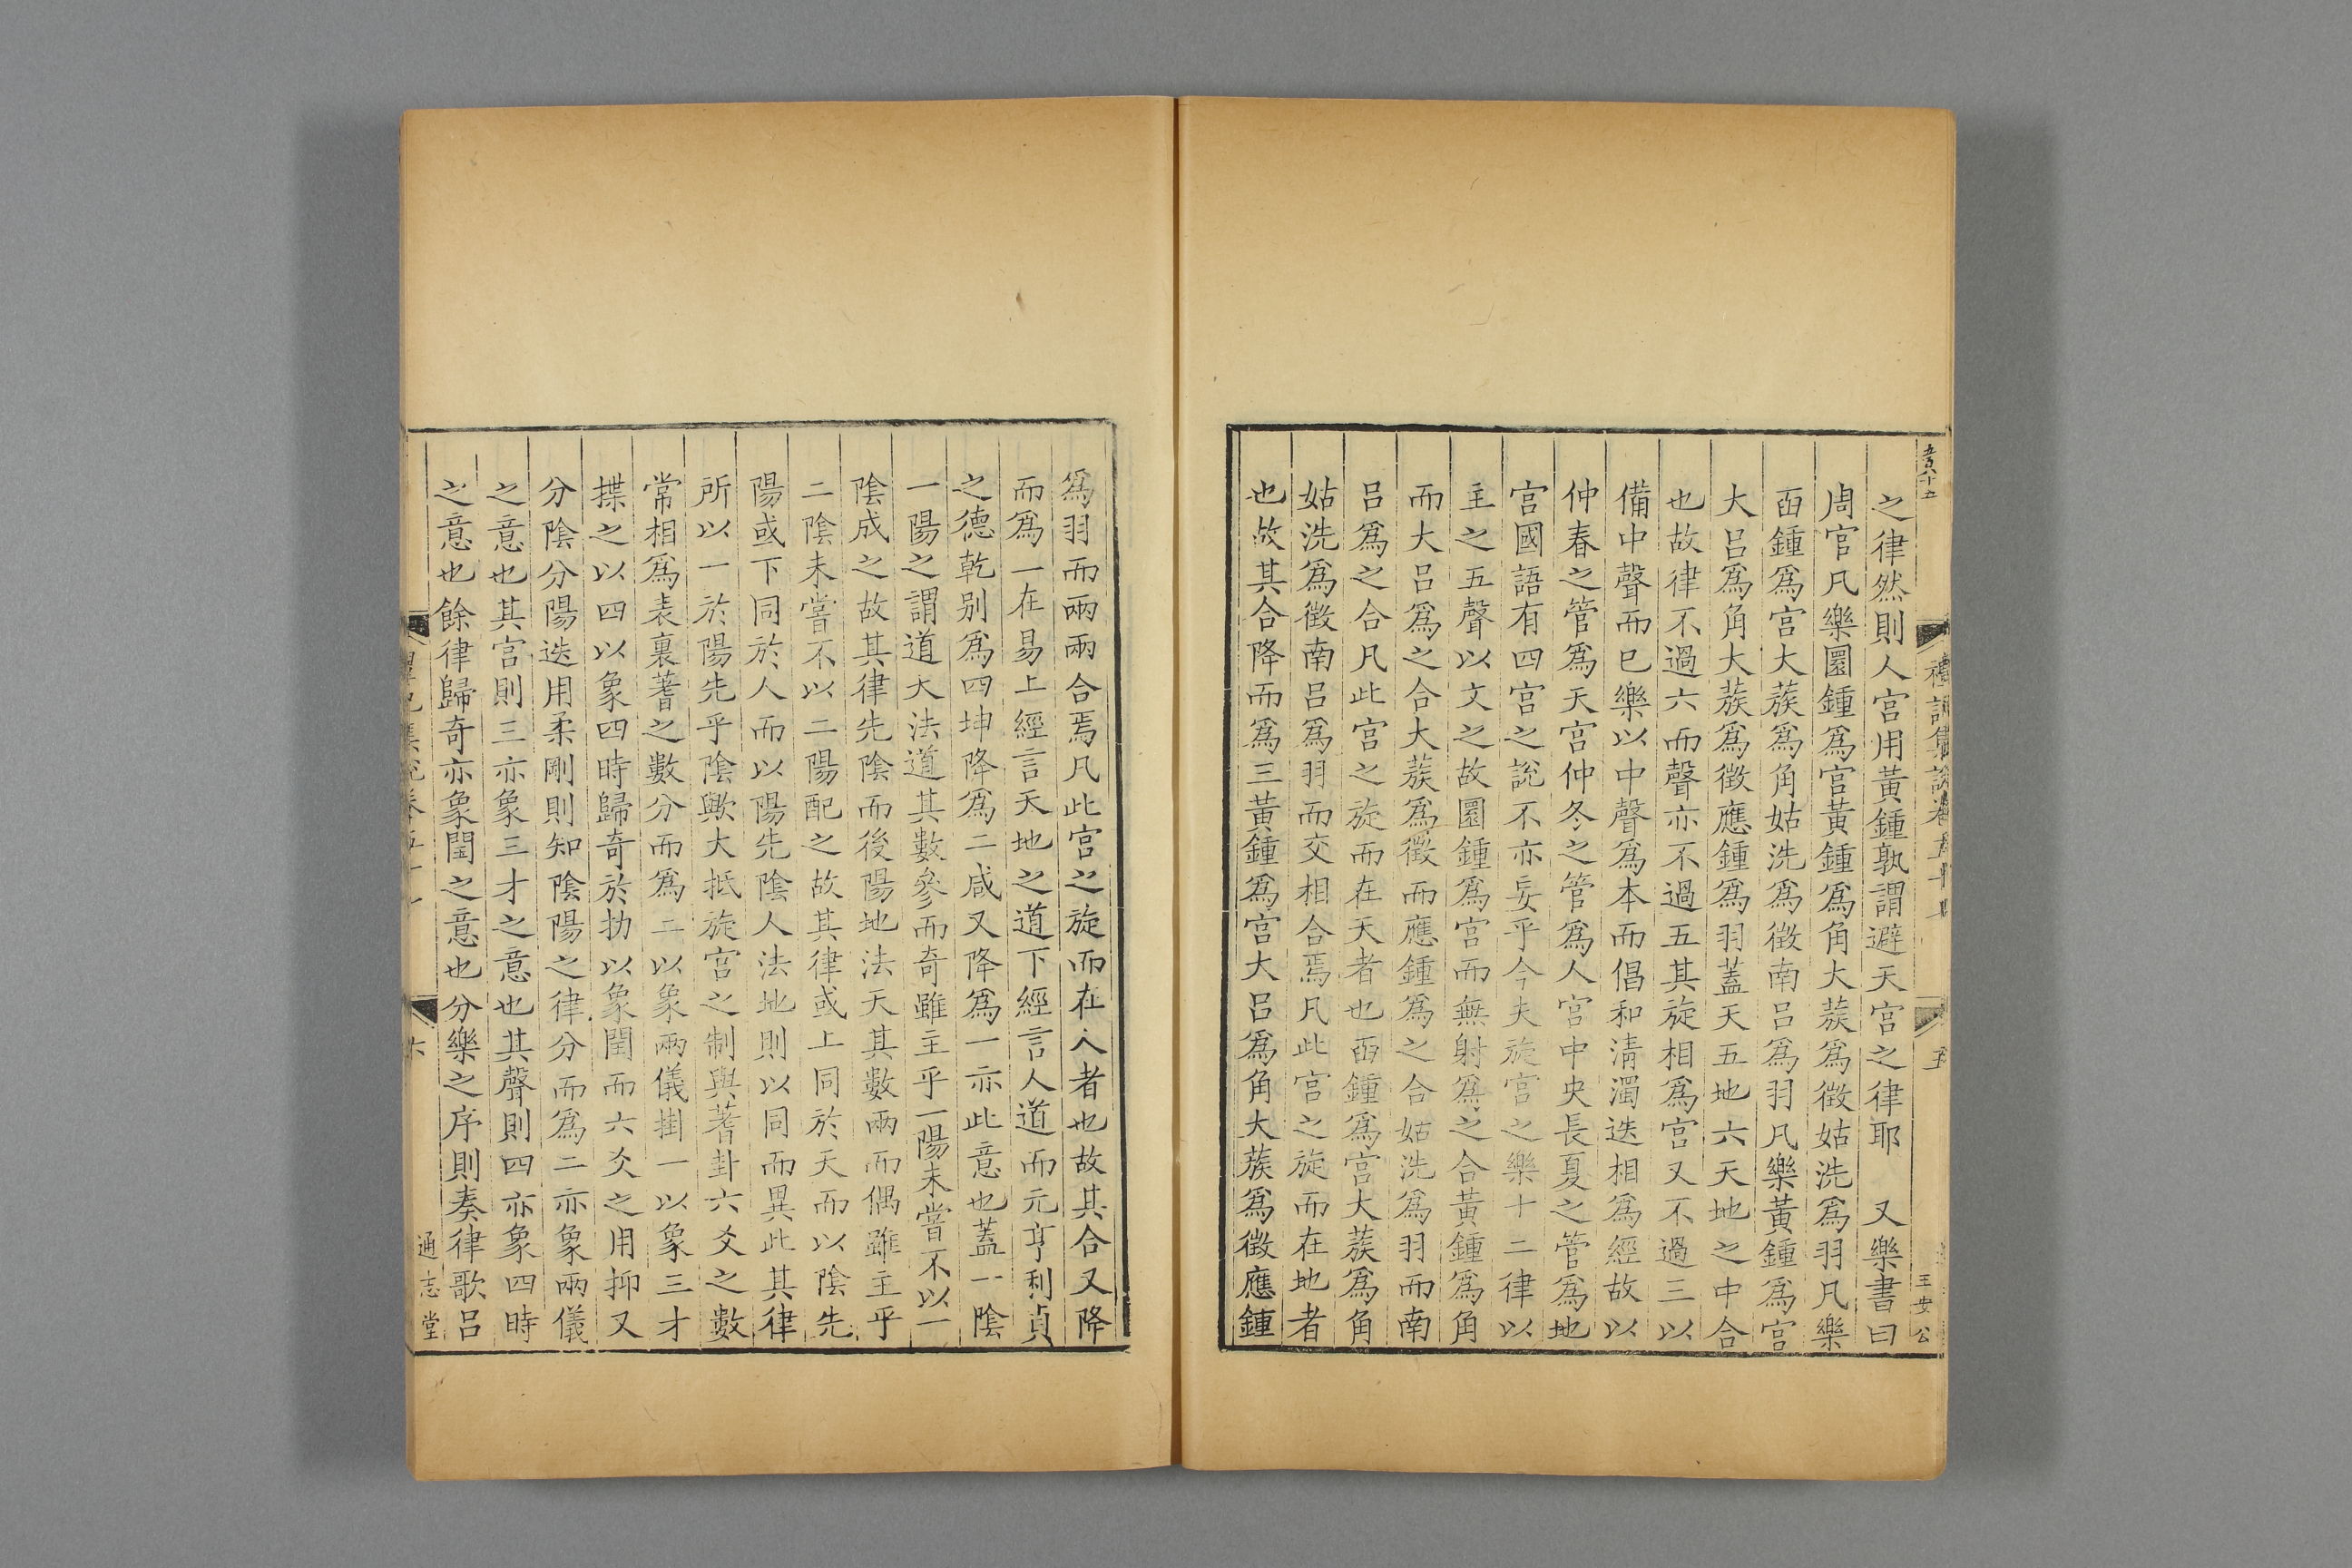 五百八十五
禮記集說卷五十七
五
王安公
之律然則人宮用黃鍾孰謂避天宮之律耶　又樂書曰
周官凡樂圜鍾爲宮黃鍾爲角大蔟爲徵姑洗爲羽凡樂
函鍾爲宮大蔟爲角姑洗爲徵南呂爲羽凡樂黃鍾爲宮
大呂爲角大蔟爲徵應鍾爲羽蓋天五地六天地之中合
也故律不過六而聲亦不過五其旋相爲宮又不過三以
備中聲而已樂以中聲爲本而倡和清濁迭相爲經故以
仲春之管爲天宮仲冬之管爲人宮中央長夏之管爲地
宮國語有四宮之說不亦妄乎今夫旋宮之樂十二律以
主之五聲以文之故圜鍾爲宮而無射爲之合黃鍾爲角
而大呂爲之合大蔟爲徵而應鍾爲之合姑洗爲羽而南
呂爲之合凡此宮之旋而在天者也函鍾爲宮大蔟爲角
姑洗爲徵南呂爲羽而交相合焉凡此宮之旋而在地者
也故其合降而爲三黃鍾爲宮大呂爲角大蔟爲徵應鍾
爲羽而兩兩合焉凡此宮之旋而在人者也故其合又降
而爲一在易上經言天地之道下經言人道而元亨利貞
之德乾别爲四坤降爲二咸又降爲一亦此意也蓋一陰
一陽之謂道天法道其數參而奇雖主乎一陽未嘗不以一
陰成之故其律先陰而後陽地法天其數兩而偶雖主乎
二陰未嘗不以二陽配之故其律或上同於天而以陰先
陽或下同於人而以陽先陰人法地則以同而異此其律
所以一於陽先乎陰歟大抵旋宮之制與蓍卦六爻之數
常相爲表裏蓍之數分而爲二以象兩儀掛一以象三才
揲之以四以象四時歸奇於扐以象閏而六爻之用抑又
分陰分陽迭用柔剛則知陰陽之律分而爲二亦象兩儀
之意也其宮則三亦象三才之意也其聲則四亦象四時
之意也餘律歸奇亦象閏之意也分樂之序則奏律歌呂
六
通志堂